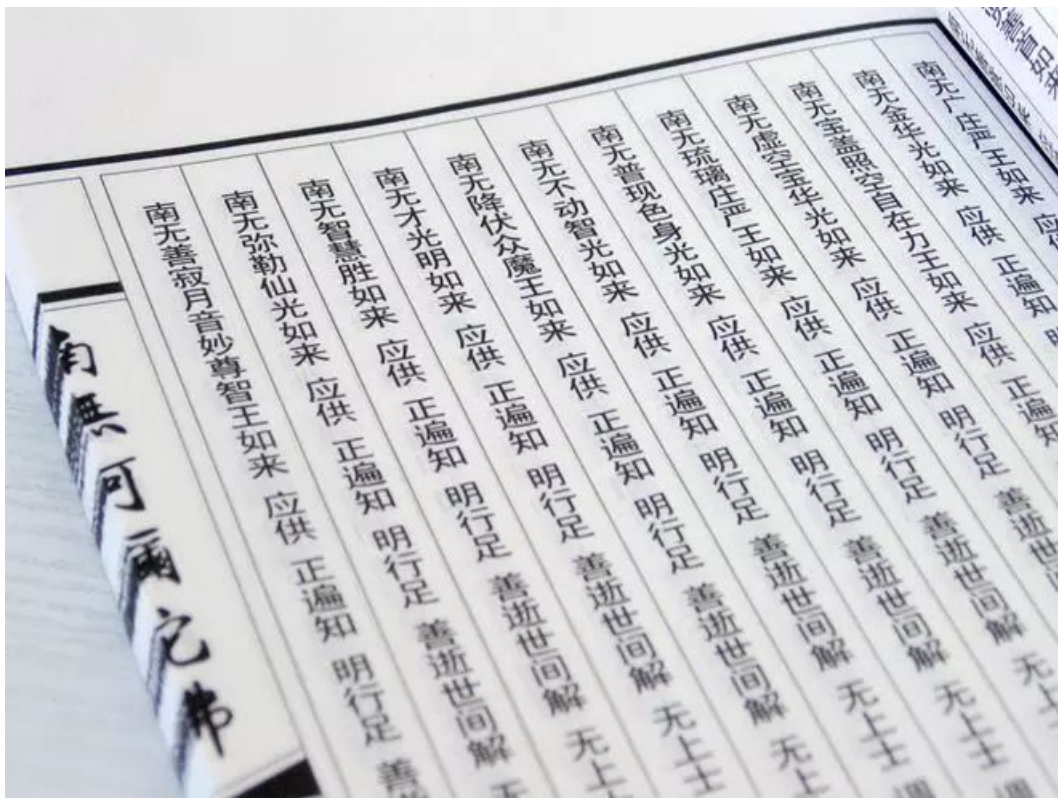 南无广庄严王如来 应供
南无金华光如来 应供 正遍知 明
南无宝盖照空自在力王如来 应供 正遍知
南无虚空宝华光如来 应供 正遍知 明行足 善逝世间解
南无琉璃庄严王如来 应供 正遍知 明行足 善逝世间解 无上
南无普现色身光如来 应供 正遍知 明行足 善逝世间解 无上士 调
南无不动智光如来 应供 正遍知 明行足 善逝世间解 无上士 调
南无降伏众魔王如来 应供 正遍知 明行足 善逝世间解 无上
南无才光明如来 应供 正遍知 明行足 善逝世间解 无上士
南无智慧胜如来 应供 正遍知 明行足 善逝世间解 无上
南无弥勒仙光如来 应供 正遍知 明行足 善逝世间解 无
南无善寂月音妙尊智王如来 应供 正遍知 明行足 善